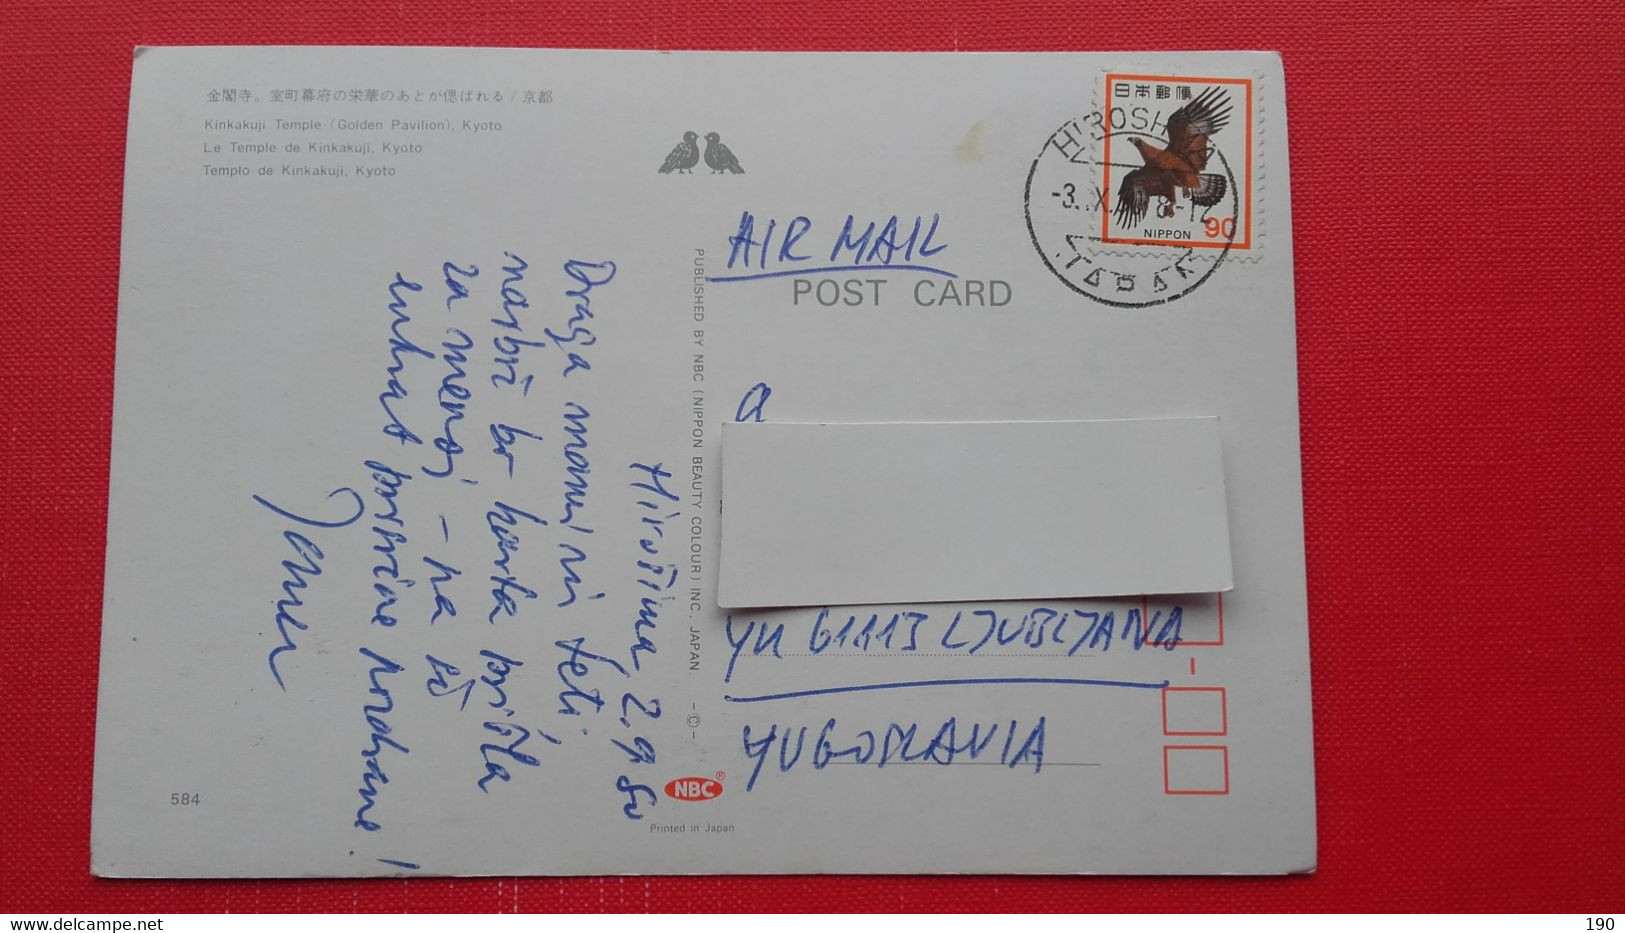 金閣寺。室町幕府の栄華のあとが偲ばれる / 京都
Kinkakuji Temple (Golden Pavilion), Kyoto
Le Temple de Kinkakuji, Kyoto
Templo de Kinkakuji, Kyoto
日本郵便
NIPPON 90
HIROSH
-3. X. 8-12
JAPAN
AIR MAIL
POST CARD
PUBLISHED BY NBC (NIPPON BEAUTY COLOUR) INC., JAPAN. -©-
Hirošima, 2.9.80
Draga mami in teti,
najbrž bo karta prišla
za menoj - na
enkrat prisrčne pozdrave!
a
YU 61113 LJUBLJANA
YUGOSLAVIA
584
NBC®
Printed in Japan
190